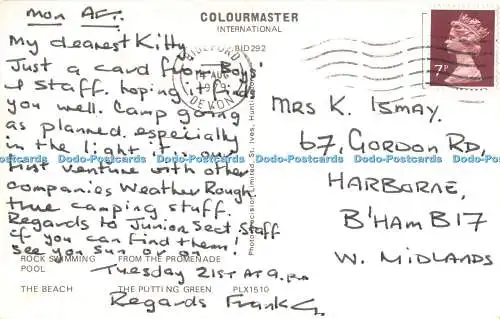 mon AFT.
COLOURMASTER
INTERNATIONAL
BID292
My dearest Kitty
Just a card from Boys'
& Staff. hoping it finds
you well. Camp going
as planned. especially
in the light it is our
first venture with other
companies Weather Rough.
true camping stuff.
Regards to Junior Sect Staff
if you can find them!
See you Sun or on
Tuesday 21st AT 9. pm
Regards Frank G.
BIDEFORD
AUG
DEVON
7P
Mrs K. Ismay.
67, Gordon Rd,
HARBORNE,
B'HAM B17
W. MIDLANDS
Photo Precision Limited, St. Ives, Hunt
ROCK SWIMMING
POOL
FROM THE PROMENADE
THE BEACH
THE PUTTING GREEN
PLX1510
Dodo-Postcards Dodo-Postcards Dodo-Postcards Dodo-Postcards Dodo-Postcards